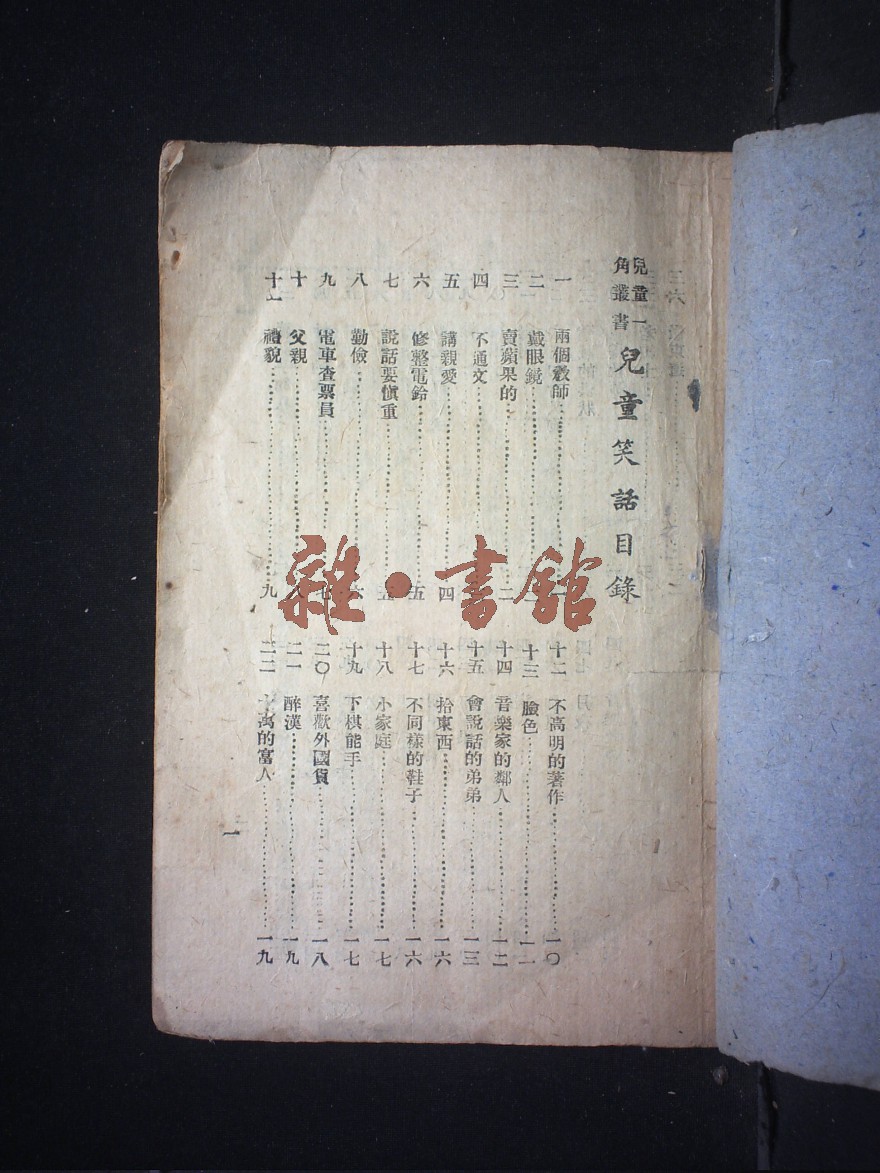 兒童一角叢書
兒童笑話目錄
一 兩個教師……一
二 戴眼鏡……
三 賣蘋果的……二
四 不通文……
五 講親愛……四
六 修整電鈴……五
七 說話要慎重……五
八 勤儉……六
九 電車查票員……七
十 父親……八
十一 禮貌……九
十二 不高明的著作……一〇
十三 臉色……一一
十四 音樂家的鄰人……一二
十五 會說話的弟弟……一三
十六 拾東西……一六
十七 不同樣的鞋子……一六
十八 小家庭……一七
十九 下棋能手……一七
二〇 喜歡外國貨……一八
二一 醉漢……一九
二二 十萬的富人……一九
一
雜·書館